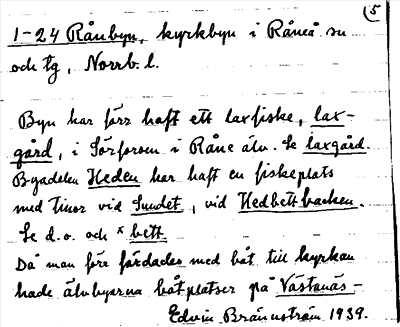 5
1-24 Rånbyn, kyrkbyn i Råneå sn
och tg, Norrb. l.
Byn har förr haft ett laxfiske, lax-
gård, i Sörforsen i Råne älv. Se laxgård.
Byadelen Heden har haft en fiskeplats
med tinor vid Sundet, vid Hedbettbacken.
Se d.o. och x bett.
Då man förr färdades med båt till kyrkan
hade älvbyarna båtplatser på Västanäs-
Edvin Brännström 1939.